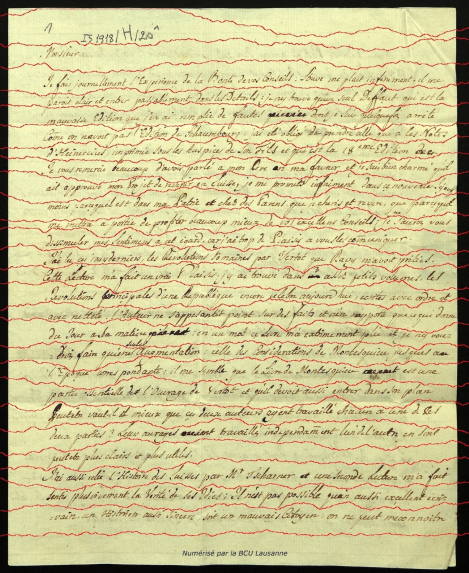 1 IS 1918/H/20^
Monsieur
Je fais journellement l'Experience de la Bonté de vos Conseils; Struve me plait infiniment; il me
parait clair et entrer parfaitement dans les Details; je n'ay trouvé qu'un seul Deffaut qui est la
mauvaise Edition que j'en ai remplie de fautes dont j'suis quelquefois arreté
Come on n'avoit pas l'Edition de Schaumbourg j'ai été obligé de prendre celle qui a les Notes
d'Heineccius imprimée sous les Auspices de son fils et qui est la 18eme Edition
Je vous remercie beaucoup d'avoir parlé a mon Pere en ma faveur et je suis bien charmé qu'il
ait approuvé mon projet de rester en Suisse; je me promets infiniment dans ce nouveau sejour
moins parce qu'il est dans ma Patrie et chez des Parens que je cheris et revere, que parcequ'il
me mettra a portée de profiter beaucoup mieux de vos excellens Conseils; je ne saurois vous
dissimuler mes sentimens a cet egard, car j'ai trop de Plaisir a vous les comuniquer.
J'ai lu ces jours derniers les Revolutions Romaines par Vertot que Ray m'avoit pretées.
Cette lecture m'a fait un vrai Plaisir; j'y ai trouvé dans assés petits volumes, les
Revolutions principales d'une Republique encor celebre aujourd'hui contées avec ordre et
avec netteté l'Auteur ne s'appesantit point sur des faits et n'en rapporte que ceux qui donnent
du Jour a sa matiere; en un mot ce livre m'a extremement plu et je n'y vou-
drois faire qu'une seule Augmentation celle des Considerations de Montesquieu
l'Epoque correspondante; il me semble que le Livre de Montesquieu est une
partie essentielle de l'Ouvrage de Vertot et qu'il devoit aussi entrer dans son plan
Peutetre vaut-il mieux que ces deux auteurs ayent travaillé chacun a une de ces
deux parties & leurs ouvrages travaillés independament l'un de l'autre en sont
peutetre plus clairs et plus utiles.
J'ai aussi relu l'Histoire des Suisses par Mr Tscharner et une seconde lecture m'a fait
sentir plus vivement la Verité de ses Idées; il n'est pas possible qu'un aussi excellent ecri-
vain un Historien aussi sincere soit un mauvais Citoyen on ne peut meconnoitre
Numérisé par la BCU Lausanne